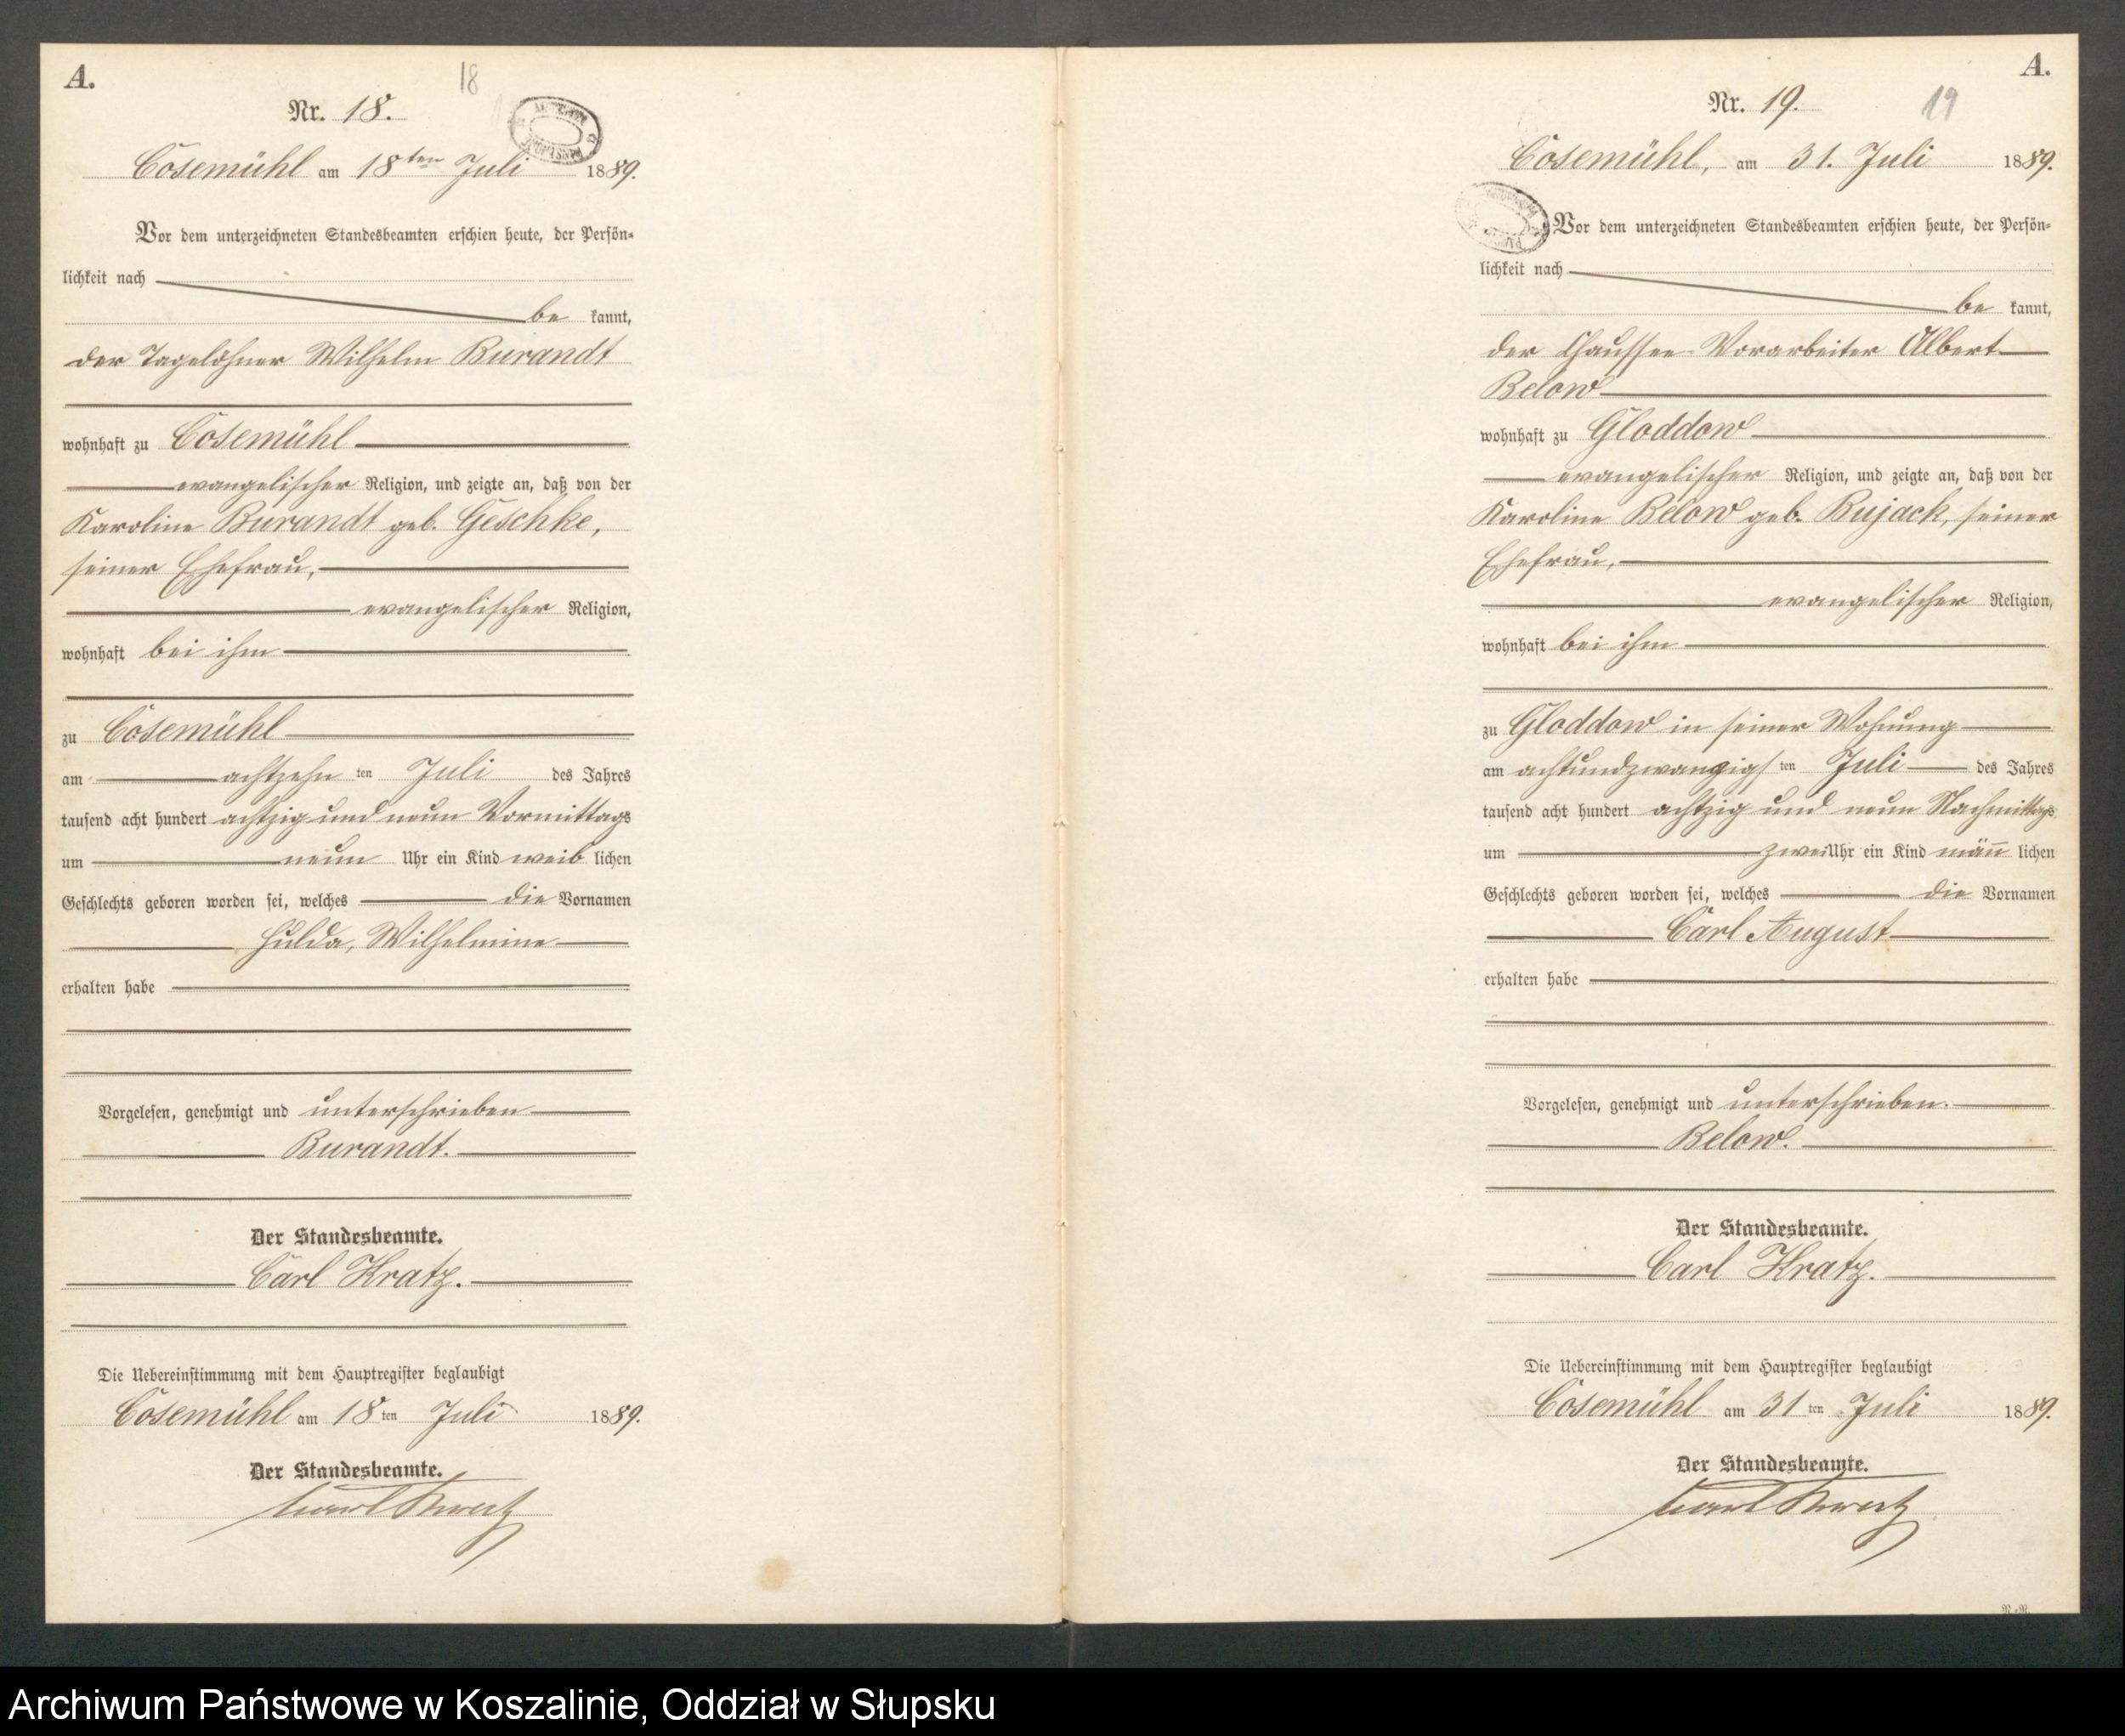 A.
18
Nr. 18.
Cösemühl am 18ten Juli 1889.
Vor dem unterzeichneten Standesbeamten erschien heute, der Persön-
lichkeit nach
be kannt,
der Tagelöhner Wilhelm Burandt
wohnhaft zu Cösemühl
evangelischer Religion, und zeigte an, daß von der
Karoline Burandt geb. Geschke,
seiner Ehefrau,
evangelischer Religion,
wohnhaft bei ihm
zu Cösemühl
am achtzehn ten Juli des Jahres
tausend acht hundert achtzig und neun Vormittags
um neun Uhr ein Kind weib lichen
Geschlechts geboren worden sei, welches die Vornamen
Hulda, Wilhelmine
erhalten habe
Vorgelesen, genehmigt und unterschrieben
Burandt.
Der Standesbeamte.
Carl Kratz.
Die Uebereinstimmung mit dem Hauptregister beglaubigt
Cösemühl am 18 ten Juli 1889.
Der Standesbeamte.
Carl Kratz
A.
19
Nr. 19.
Cösemühl, am 31. Juli 1889.
Vor dem unterzeichneten Standesbeamten erschien heute, der Persön-
lichkeit nach
be kannt,
der Chaussee-Vorarbeiter Albert
Below
wohnhaft zu Gloddow
evangelischer Religion, und zeigte an, daß von der
Karoline Below geb. Bujack, seiner
Ehefrau,
evangelischer Religion,
wohnhaft bei ihm
zu Gloddow in seiner Wohnung
am achtundzwanzigs ten Juli des Jahres
tausend acht hundert achtzig und neun Nachmittags
um zwei Uhr ein Kind männ lichen
Geschlechts geboren worden sei, welches die Vornamen
Carl August
erhalten habe
Vorgelesen, genehmigt und unterschrieben.
Below.
Der Standesbeamte.
Carl Kratz.
Die Uebereinstimmung mit dem Hauptregister beglaubigt
Cösemühl am 31 ten Juli 1889.
Der Standesbeamte.
Carl Kratz
Archiwum Państwowe w Koszalinie, Oddział w Słupsku